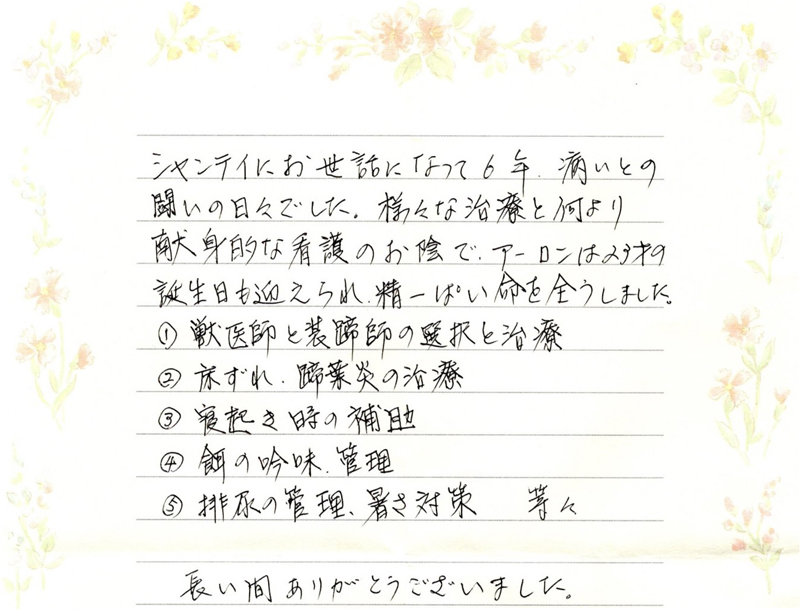 シャンテイにお世話になって6年、病いとの
闘いの日々でした。様々な治療と何より
献身的な看護のお陰で、アーロンは23才の
誕生日も迎えられ、精一ぱい命を全うしました。
① 獣医師と装蹄師の選択と治療
② 床ずれ、蹄葉炎の治療
③ 寝起き時の補助
④ 餌の吟味、管理
⑤ 排尿の管理、暑さ対策　等々
長い間ありがとうございました。